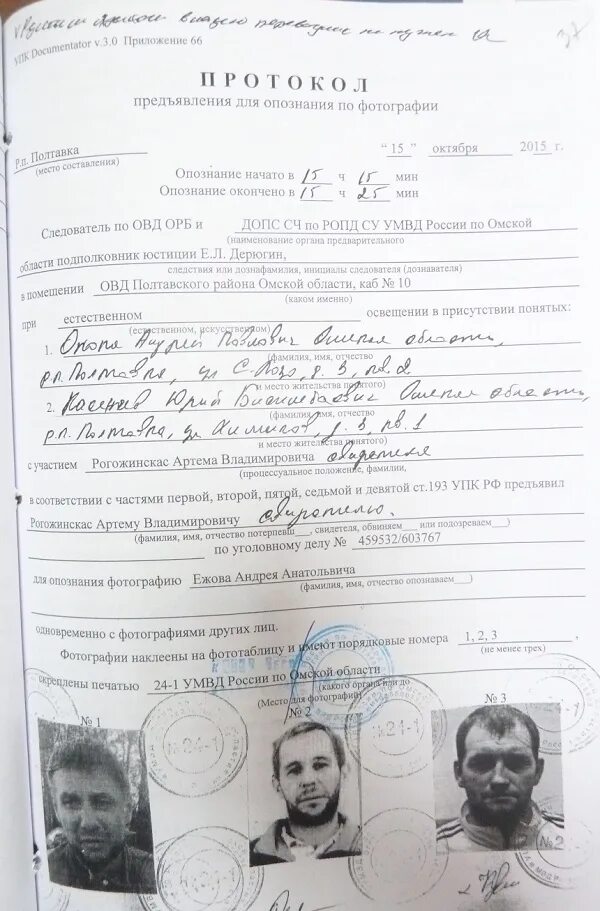 переводчик не нужен
37
УПК Documentator v.3.0 Приложение 66
ПРОТОКОЛ
предъявления для опознания по фотографии
Р.п. Полтавка
(место составления)
"15" октября 2015 г.
Опознание начато в 15 ч 15 мин
Опознание окончено в 15 ч 25 мин
Следователь по ОВД ОРБ и ДОПС СЧ по РОПД СУ УМВД России по Омской
(наименование органа предварительного
области подполковник юстиции Е.Л. Дерюгин,
следствия или дознафамилия, инициалы следователя (дознавателя)
в помещении ОВД Полтавского района Омской области, каб № 10
(каком именно)
при естественном освещении в присутствии понятых:
(естественном, искусственном)
1. Андрей Павлович Омская область,
(фамилия, имя, отчество
р.п. Полтавка, ул д. 3, кв. 2
и место жительства понятого)
2. Юрий Омская область,
(фамилия, имя, отчество
р.п. Полтавка, ул Химиков, д. 3, кв. 1
и место жительства понятого)
с участием Рогожинскас Артема Владимировича свидетеля
(процессуальное положение, фамилии,
в соответствии с частями первой, второй, пятой, седьмой и девятой ст.193 УПК РФ предъявил
Рогожинскас Артему Владимировичу свидетелю.
(фамилия, имя, отчество потерпевш___, свидетеля, обвиняем___ или подозреваем___)
по уголовному делу № 459532/603767
для опознания фотографию Ежова Андрея Анатольвича
(фамилия, имя, отчество опознаваем___)
одновременно с фотографиями других лиц.
Фотографии наклеены на фототаблицу и имеют порядковые номера 1, 2, 3 ,
(не менее трех)
скреплены печатью 24-1 УМВД России по Омской области
(какого органа или до
(Место для фотографий)
№ 1
№ 2
№ 3
№24-1
№24-1
№2